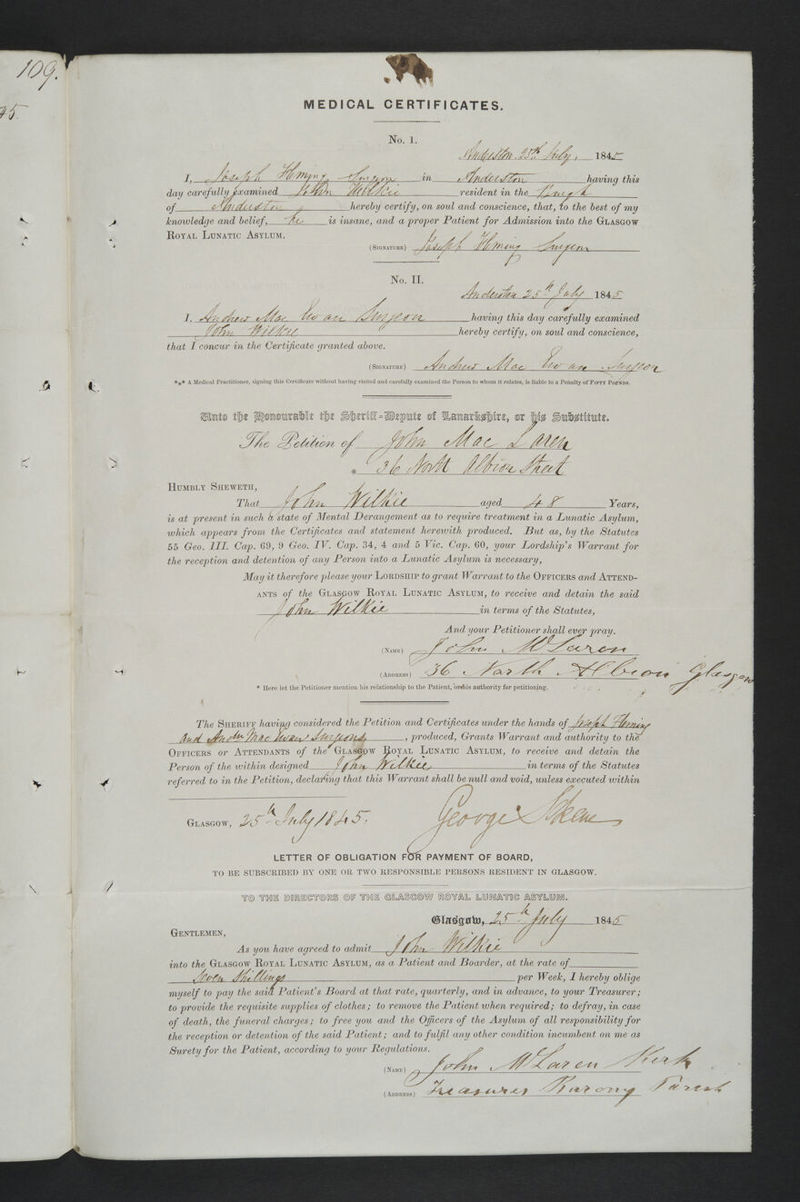 109.
45.
MEDICAL CERTIFICATES.
No. I.
Anderston 25th July, 1845
I, Joseph Fleming Surgeon in Anderston having this
day carefully examined John Wilkie resident in the Burgh
of Anderston hereby certify, on soul and conscience, that, to the best of my
knowledge and belief, he is insane, and a proper Patient for Admission into the GLASGOW
ROYAL LUNATIC ASYLUM.
(SIGNATURE) Joseph Fleming Surgeon
No. II.
Anderston 25th July 1845
I, Andrew Mac Ewan Surgeon having this day carefully examined
John Wilkie hereby certify, on soul and conscience,
that I concur in the Certificate granted above.
(SIGNATURE) Andrew Mac Ewan Surgeon
*** A Medical Practitioner, signing this Certificate without having visited and carefully examined the Person to whom it relates, is liable to a Penalty of FIFTY POUNDS.
Unto the Honourable the Sheriff-Depute of Lanarkshire, or his Substitute.
The Petition of John Mac Laren
* 36 North Albion Street
HUMBLY SHEWETH,
That John Wilkie aged 48 Years,
is at present in such a state of Mental Derangement as to require treatment in a Lunatic Asylum,
which appears from the Certificates and statement herewith produced. But as, by the Statutes
55 Geo. III. Cap. 69, 9 Geo. IV. Cap. 34, 4 and 5 Vic. Cap. 60, your Lordship's Warrant for
the reception and detention of any Person into a Lunatic Asylum is necessary,
May it therefore please your LORDSHIP to grant Warrant to the OFFICERS and ATTEND-
ANTS of the GLASGOW ROYAL LUNATIC ASYLUM, to receive and detain the said
John Wilkie in terms of the Statutes,
And your Petitioner shall ever pray.
(NAME) John McLaren
(ADDRESS) 36 North Albion Glasgow
* Here let the Petitioner mention his relationship to the Patient, or his authority for petitioning.
The SHERIFF having considered the Petition and Certificates under the hands of Joseph Fleming
and Andw Mac Ewan Surgeons, produced, Grants Warrant and authority to the
OFFICERS or ATTENDANTS of the GLASGOW ROYAL LUNATIC ASYLUM, to receive and detain the
Person of the within designed John Wilkie in terms of the Statutes
referred to in the Petition, declaring that this Warrant shall be null and void, unless executed within
GLASGOW, 25th July 1845. George Skene
LETTER OF OBLIGATION FOR PAYMENT OF BOARD,
TO BE SUBSCRIBED BY ONE OR TWO RESPONSIBLE PERSONS RESIDENT IN GLASGOW.
TO THE DIRECTORS OF THE GLASGOW ROYAL LUNATIC ASYLUM.
Glasgow, 25th July 1845
GENTLEMEN,
As you have agreed to admit John Wilkie
into the GLASGOW ROYAL LUNATIC ASYLUM, as a Patient and Boarder, at the rate of
Seven Shillings per Week, I hereby oblige
myself to pay the said Patient's Board at that rate, quarterly, and in advance, to your Treasurer;
to provide the requisite supplies of clothes; to remove the Patient when required; to defray, in case
of death, the funeral charges; to free you and the Officers of the Asylum of all responsibility for
the reception or detention of the said Patient; and to fulfil any other condition incumbent on me as
Surety for the Patient, according to your Regulations.
(NAME) John McLaren Kirk
(ADDRESS) Treasurer Barony Parish